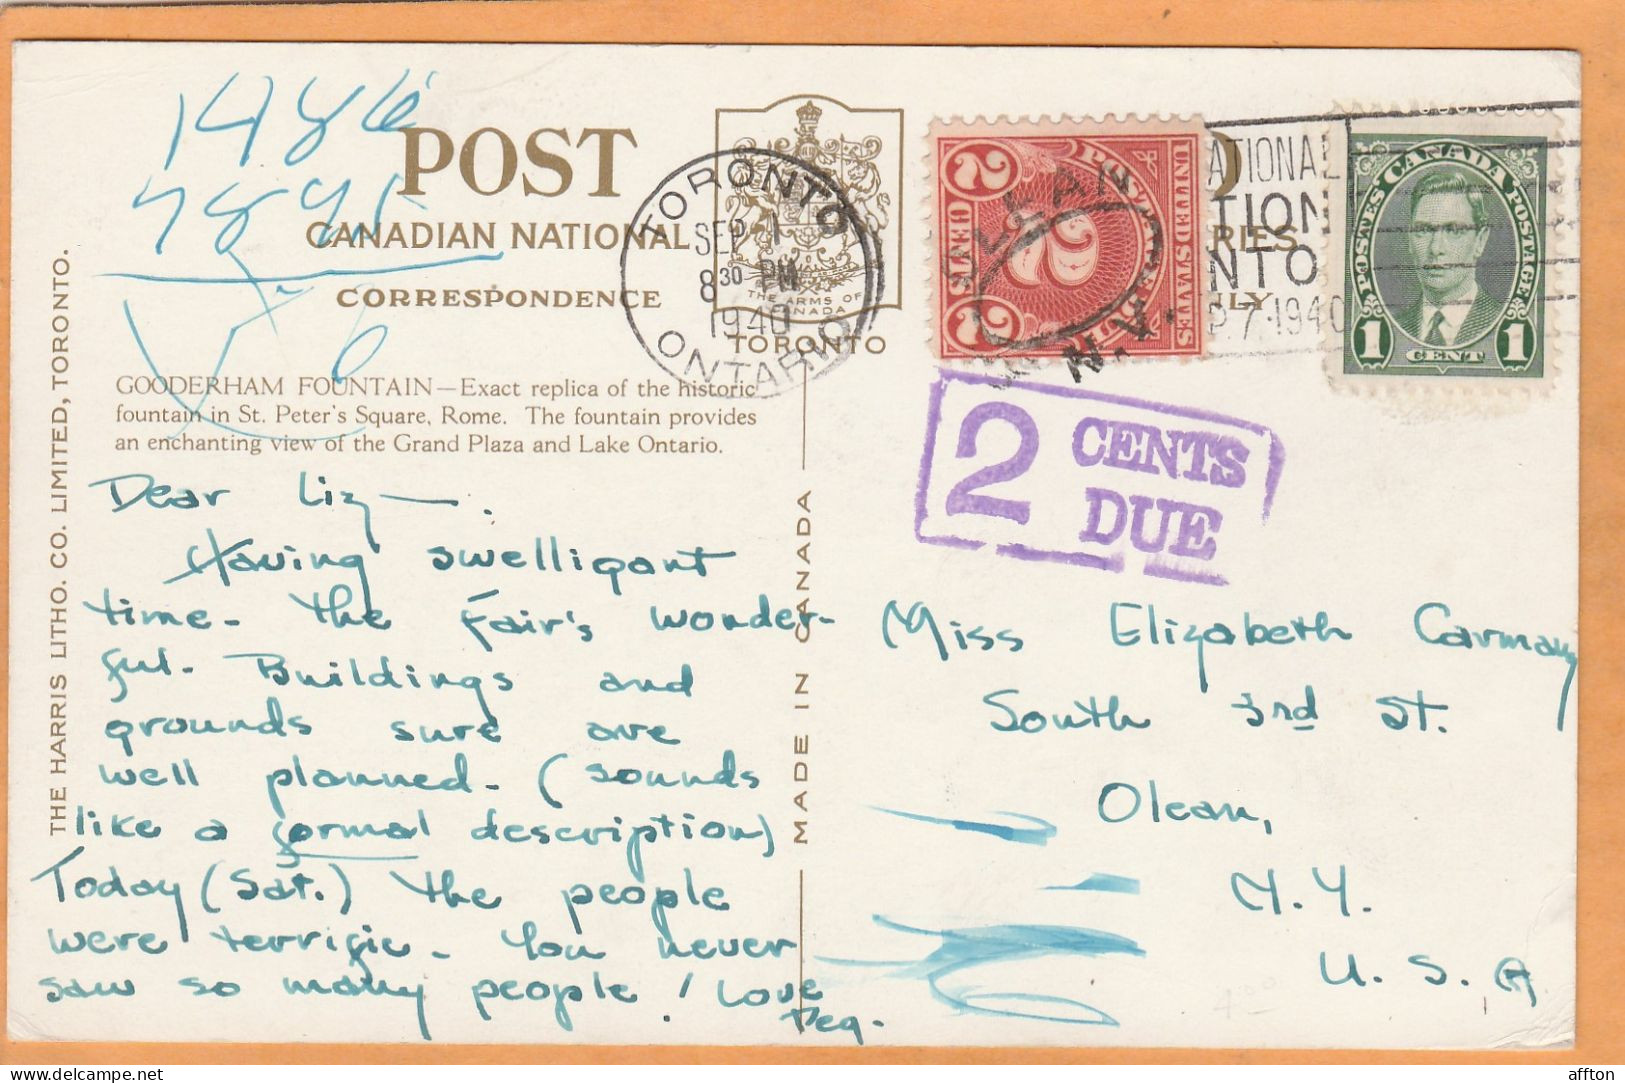 1486
POST
CANADIAN NATIONAL
CORRESPONDENCE
GOODERHAM FOUNTAIN—Exact replica of the historic
fountain in St. Peter's Square, Rome. The fountain provides
an enchanting view of the Grand Plaza and Lake Ontario.
THE HARRIS LITHO. CO. LIMITED, TORONTO.
MADE IN CANADA
THE ARMS OF
CANADA
TORONTO
TORONTO
SEP 1
8 30 PM
1940
ONTARIO
UNITED STATES
POSTAGE DUE
2
2
2
OLEAN
N.Y.
CANADA
POSTES POSTAGE
1 CENT 1
2 CENTS
DUE
Dear Liz —.
Having swelligant
time - the Fair's wonder-
ful - Buildings and
grounds sure are
well planned - (sounds
like a formal description)
Today (Sat.) the people
were terrific - You never
saw so many people! Love
Peg.
Miss Elizabeth Carmany
South 3rd St.
Olean,
N.Y.
U.S.A
affton